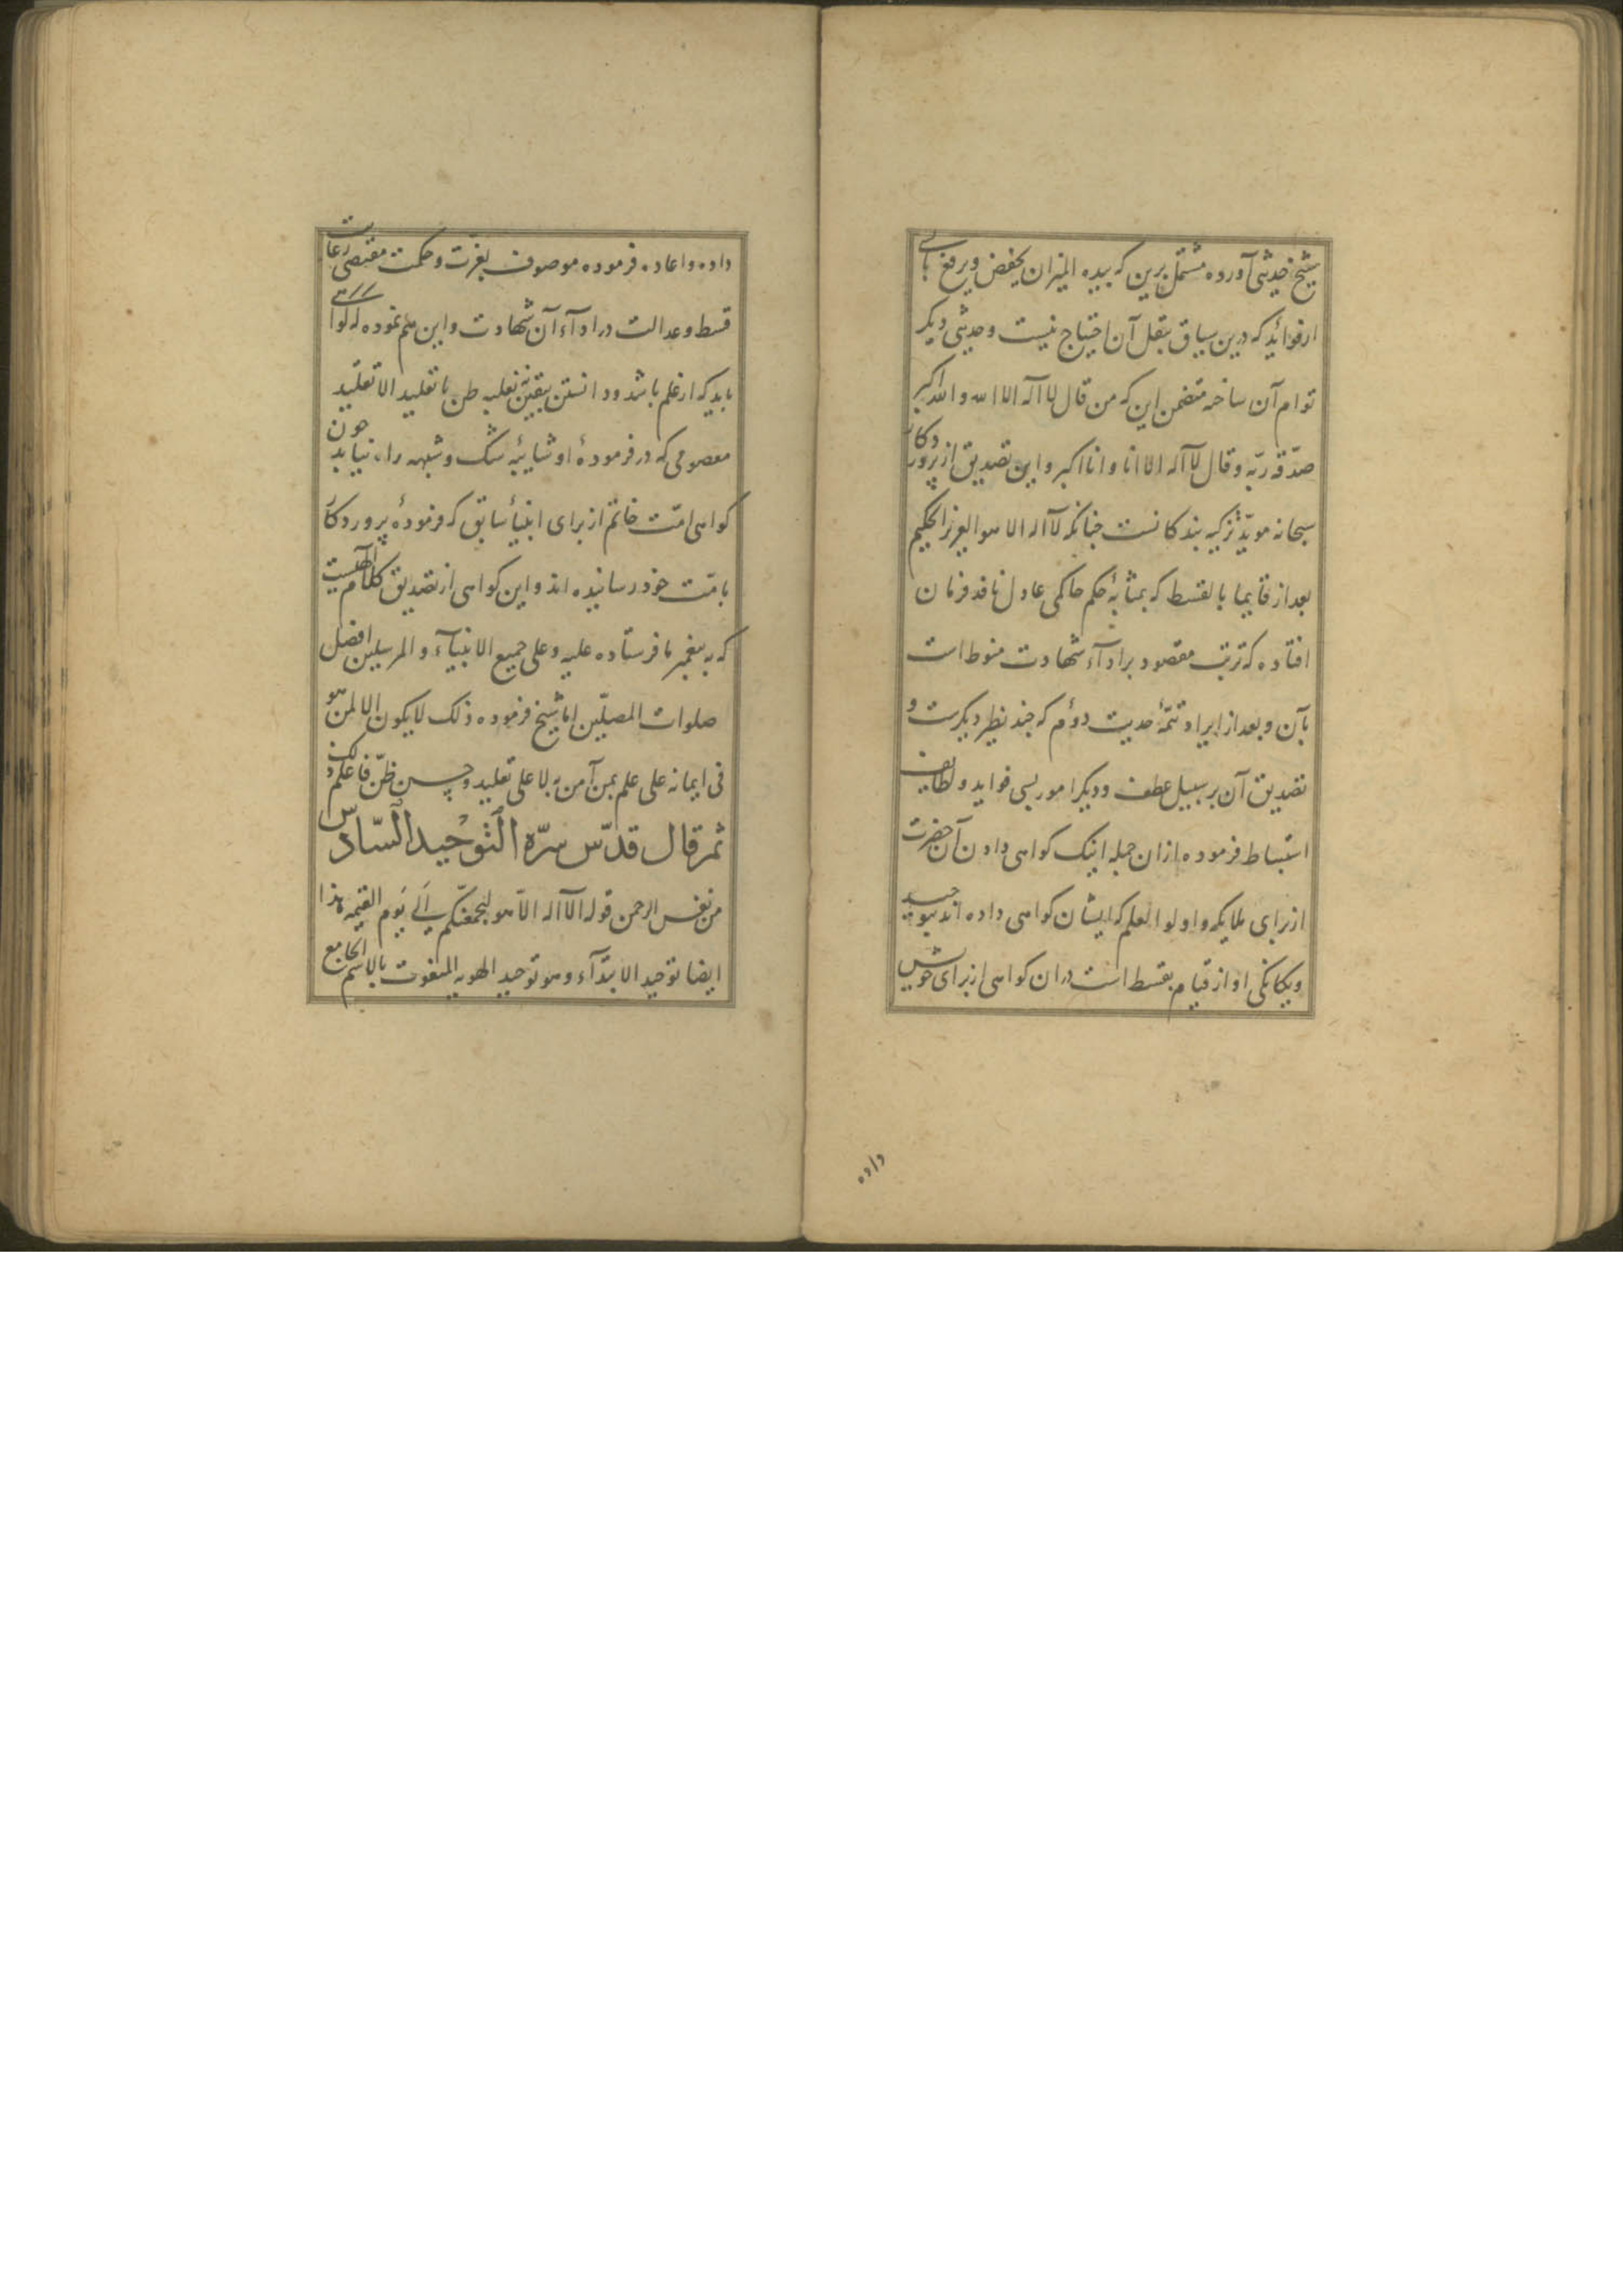 شیخ حدیثی آورده مشتمل برین که بیده المیزان یخفض و یرفع با بسی
از فواید که درین سیاق بنقل آن احتیاج نیست و حدیثی دیگر
توام آن ساخته متضمن این که من قال لا اله الا الله والله اکبر
صدّقه ربّه و قال لا اله الا انا و انا اکبر و این تصدیق از پروردکار
سبحانه مویّد تزکیه بندکانست چنانکه لا اله الا هو العزیز الحکیم
بعد از قایما بالقسط که بمثابهٔ حکم حاکمی عادل نافذ فرمان
افتاده که ترتب مقصود بر ادآء شهادت منوط است
بآن و بعد از ایراد تتمهٔ حدیث دوم که چند نظیر دیگرست و
تصدیق آن بر سبیل عطف و دیگر امور بسی فواید و لطایف
استنباط فرموده ازان جمله اینک کواهی دادن آن حضرت
از برای ملایکه و اولوا العلم که ایشان کواهی داده اند بتوحید
و یکانکی او از قیام بقسط است دران کواهی از برای خویش
داده
داده و اعاده فرموده موصوف بعزت و حکمت مقتضی رعایت
قسط و عدالت در ادآء آن شهادت و این هم نموده که کواهی
باید که از علم باشد و دانستن بیقین نه بغلبه ظن یا تقلید الا تقلید
معصومی که در فرمودهٔ او شایبهٔ شک و شبهه راه نیابد چون
کواهی امّت خاتم از برای انبیأ سابق که فرمودهٔ پروردکار
بامّت خود رسانیده اند و این کواهی از تصدیق کلام الهیست
که به پیغمبر ما فرستاده علیه و علی جمیع الانبیآء و المرسلین افضل
صلوات المصلّین اما شیخ فرموده ذلک لا یکون الا لمن هو
فی ایمانه علی علم بمن آمن به لا علی تقلید و حسن ظنّ فاعلم ذلک
ثم قال قدّس سرّه التّوحید السّادس
من نفس الرحمن قوله الا اله الّا هو لیجمعنّکم الی یوم القیمه هذا
ایضا توحید الابتدآء و هو توحید الهویه المنعوت بالاسم الجامع